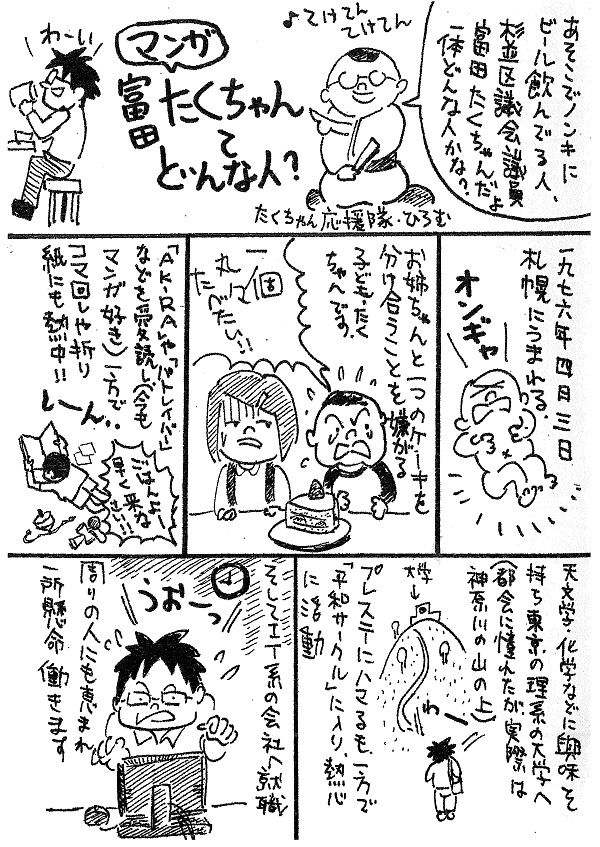 あそこでノンキに
ビール飲んでる人、
杉並区議会議員
富田たくちゃんだよ
一体どんな人かな?
♪てけてん
てけてん
マンガ
富田たくちゃん
て
どんな人?
わーい
たくちゃん応援隊・ひろむ
一九七六年四月三日
札幌にうまれる。
オンギャー
お姉ちゃんと一つのケーキを
分け合うことを嫌がる
子ども・たく
ちゃんです。
一個
丸々
たべたい!!
「AKIRA」や「パトレイバー」
などを愛読し(今も
マンガ好き)一方で
コマ回しや折り
紙にも熱中!!
しーん…
ごはんよー
早く来な
さい!!
天文学、化学などに興味を
持ち東京の理系の大学へ
(都会に憧れたが実際は
神奈川の山の上)
大学→
わー
プレステにハマるも、一方で
「平和サークル」に入り、熱心
に活動
そしてIT系の会社へ就職
うおーっ
周りの人にも恵まれ
一所懸命働きます